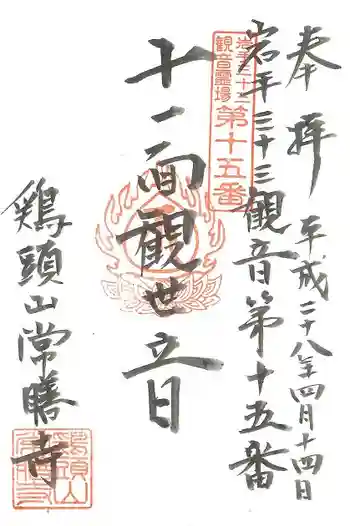 奉拝 平成二十八年四月十四日
岩手三十三観音第十五番
岩手三十三
観音霊場
第十五番
十一面観世音
鶏頭山常勝寺